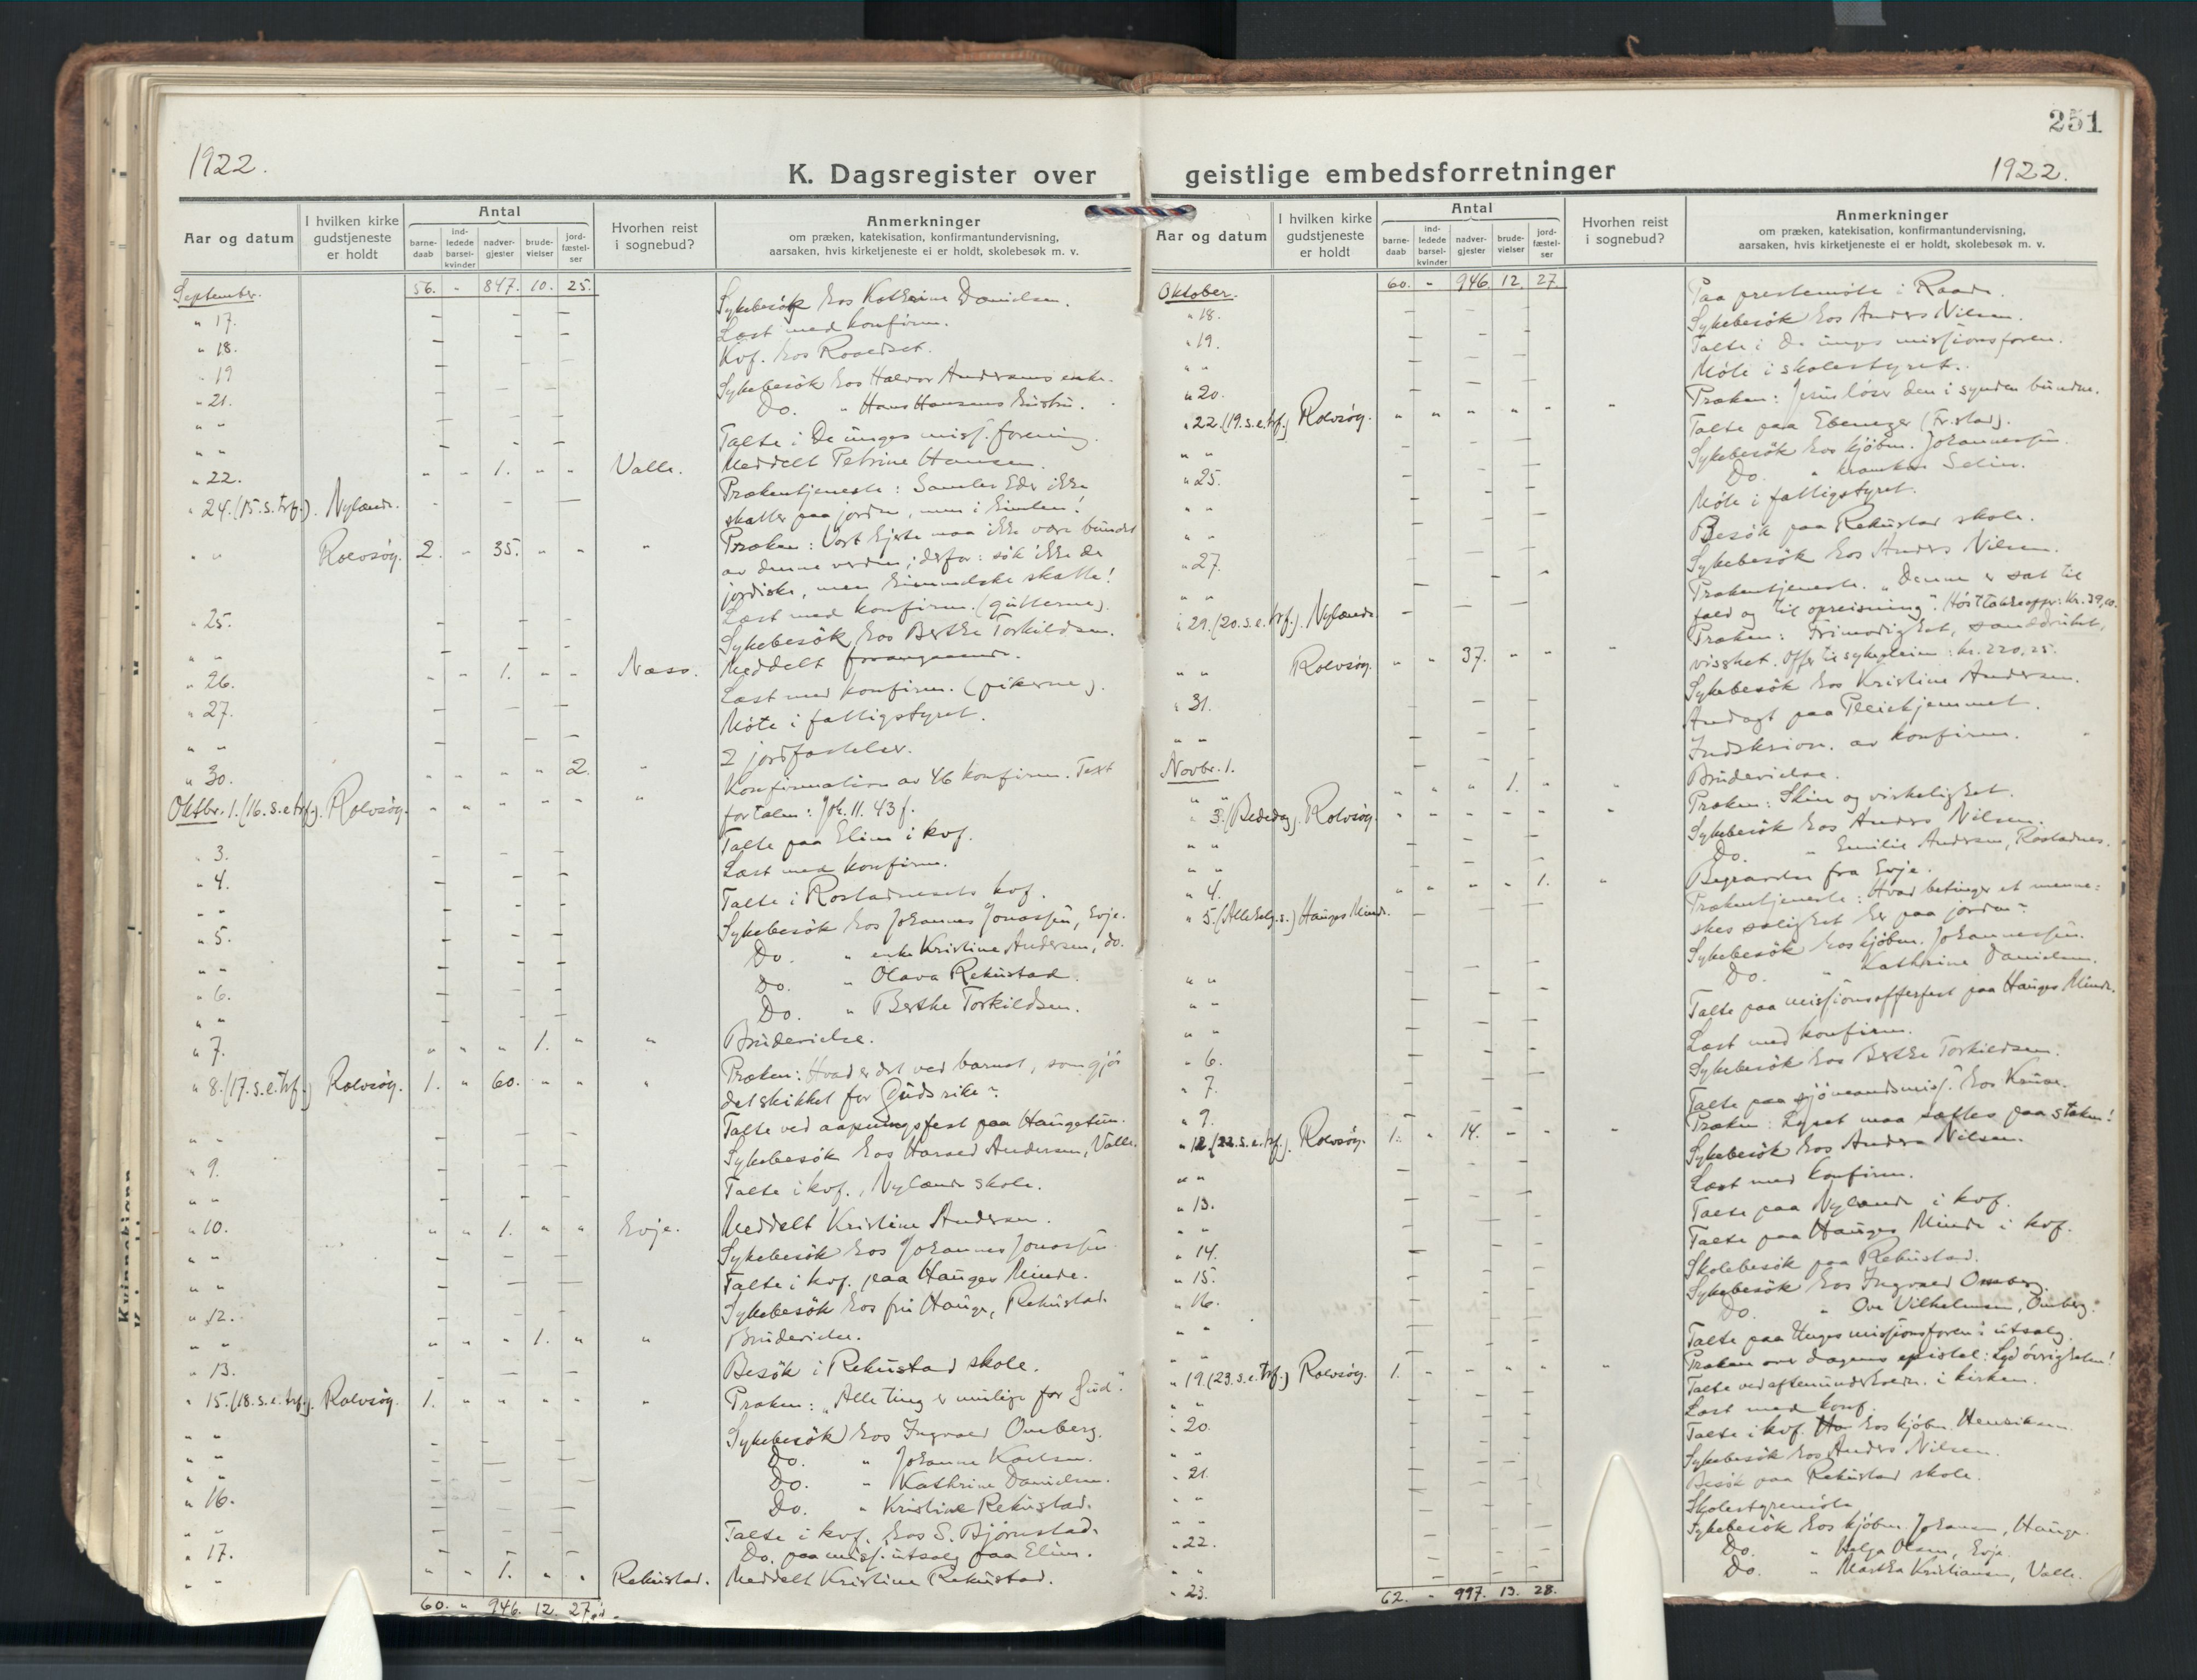 251
1922.
K. Dagsregister over
geistlige embedsforretninger
1922.
Aar og datum
I hvilken kirke gudstjeneste er holdt
Antal
barne-daab
ind-ledede barsel-kvinder
nadver-gjester
brude-vielser
jord-fæstel-ser
Hvorhen reist i sognebud?
Anmerkninger
om præken, katekisation, konfirmantundervisning,
aarsaken, hvis kirketjeneste ei er holdt, skolebesøk m. v.
September. 56. " 847. 10. 25.
" 17. Sykebesök hos Kathrine Danielsen.
" 18. Læst med konfirm.
" 19 Kvf. hos Roaldset.
" 21. Sykebesök hos Halvor Andersens enke.
" " Do. " Hans Hansens hustru.
" " Talte i De unges miss. forening.
" 22. " " 1. " " Valle. Meddelt Petrine Hansen.
" 24. (15. s. trf.). Nylænde. Prækentjeneste: Samler Eder ikke
skatter paa jorden, men i himlen!
" " Rolvsøy. 2. " 35. " " " Præken: Vort hjerte maa ikke være bundet
av denne verden; derfor: søk ikke de
jordiske, men himmelske skatte!
" 25. Læst med konfirm. (gutterne).
" " Sykebesök hos Berthe Torkildsen.
" 26. " " 1. " " Næss. Meddelt forangaaende.
" 27. Læst med konfirm. (pikerne).
" " Möte i fattigstyret.
" 30. " " " " 2. " 2 jordfæstelser.
Oktbr. 1. (16. s. e. trf.). Rolvsøy. " " " " " " Konfirmation av 46 konfirm. Text
for talen: Joh. 11. 43 f.
" 3. Talte paa Elim i kvf.
" 4. Læst med konfirm.
" " Talte i Rostadnesets kvf.
" 5. Sykebesök hos Johannes Jonassen, Evje.
" " Do. " enke Kristine Andersen, do.
" 6. Do. " Olava Rekustad.
" " Do. " Berthe Torkildsen.
" 7. " " " 1. " " Brudevielse.
" 8. (17. s. e. trf.) Rolvsøy. 1. " 60. " " " Præken: Hvad er det ved barnet, som gjör
det skikket for Guds rike?
" " Talte ved aapningsfest paa Haugetun.
" 9. Sykebesök hos Harald Andersen, Valle.
" " Talte i kvf., Nylænde skole.
" 10. " " 1. " " Evje. Meddelt Kristine Andersen.
" " Sykebesök hos Johannes Jonassen
" " Talte i kvf. paa Hauges Minde.
" 12. Sykebesök hos fru Hauge, Rekustad.
" " " " " 1. " " Brudevielse.
" 13. Besök i Rekustad skole.
" 15. (18. s. e. trf.). Rolvsøy. 1. " " " " " Præken: "Alle ting er mulige for Gud".
" " Sykebesök hos Ingvald Omberg.
" " Do. " Johanne Karlsen.
" " Do. " Kathrine Danielsen.
" 16. Do. " Kristine Rekustad.
" " Talte i kvf. hos S. Björnstad.
" 17. Do. paa miss. utsalg paa Elim.
" " " " 1. " " Rekustad. Meddelt Kristine Rekustad.
60. " 946. 12. 27.
Aar og datum
I hvilken kirke gudstjeneste er holdt
Antal
barne-daab
ind-ledede barsel-kvinder
nadver-gjester
brude-vielser
jord-fæstel-ser
Hvorhen reist i sognebud?
Anmerkninger
om præken, katekisation, konfirmantundervisning,
aarsaken, hvis kirketjeneste ei er holdt, skolebesøk m. v.
Oktober. 60. " 946. 12. 27.
" 18. Paa prestemöte i Raade.
" 19. Sykebesök hos Anders Nilsen.
" " Talte i De unges missjonsforen.
" 20. Möte i skolestyret.
" 22. (19. s. e. trf.) Rolvsøy. " " " " " " Præken: Jesus löser den i synden bundne.
" " Talte paa Ebenezer (Fr.stad).
" 25. Sykebesök hos kjöbm. Johannessen.
" " Do. Selin.
" " Möte i fattigstyret.
" 27. Besök paa Rekustad skole.
" " Sykebesök hos Anders Nilsen.
" 29. (20. s. e. trf.). Nylænde. Prækentjeneste. "Denne er sat til
fald og til opreisning". Kr. 39,10.
" " Rolvsøy. " " 37. " " " Præken: Frimodighet, sanddruhet,
visshet. Offer til sykepleien: kr. 220,25.
" 31. Sykebesök hos Kristine Andersen.
" " Andagt paa Pleiehjemmet.
Novbr. 1. Indskrivn. av konfirm.
" " " " " 1. " " Brudevielse.
" 3. (Bededag). Rolvsøy. " " " " " " Præken: Skin og virkelighet.
" " Sykebesök hos Anders Nilsen.
" " Do. " Emilie Andersen, Rostadnes.
" 4. " " " " 1. " Begravelse fra Evje.
" 5. (Allehelg.s.) Hauges Minde. Prækentjeneste: Hvad betinger et menne=
skes salighet her paa jorden?
" " Sykebesök hos kjöbm. Johannessen.
" " Do. " Kathrine Danielsen.
" " Talte paa missjonsofferfest paa Hauges Minde.
" 6. Læst med konfirm.
" 7. Sykebesök hos Berthe Torkildsen.
" 9. Talte paa sjömandsmiss. hos Kruse.
" 12. (22. s. e. trf.). Rolvsøy. 1. " 14. " " " Præken: Lyset maa sættes paa staken!
" " Sykebesök hos Anders Nilsen.
" 13. Læst med konfirm.
" " Talte paa Nylænde i kvf.
" 14. Talte paa Hauges Minde i kvf.
" 15. Skolebesök paa Rekustad.
" 16. Sykebesök hos Ingvald Omberg.
" " Do. " Ove Vilhelmsen, Omberg.
" " Talte paa Unges missjonsforen.s utsalg.
" 19. (23. s. e. trf.) Rolvsøy. 1. " " " " " Præken over dagens epistel: Lyd övrigheten!
" " Talte ved aftenunderholdn. i kirken.
" 20. Læst med konf.
" " Talte i kvf. hos kjöbm. Henriksen.
" 21. Sykebesök hos Anders Nilsen.
" " Besök paa Rekustad skole.
" " Skolestyremöte
" 22. Sykebesök hos kjöbm. Johansen, Hauge.
" " Do. " Helga Olsen, Evje.
" 23. Do. " Martha Kristiansen, Valle.
62. " 997. 13. 28.